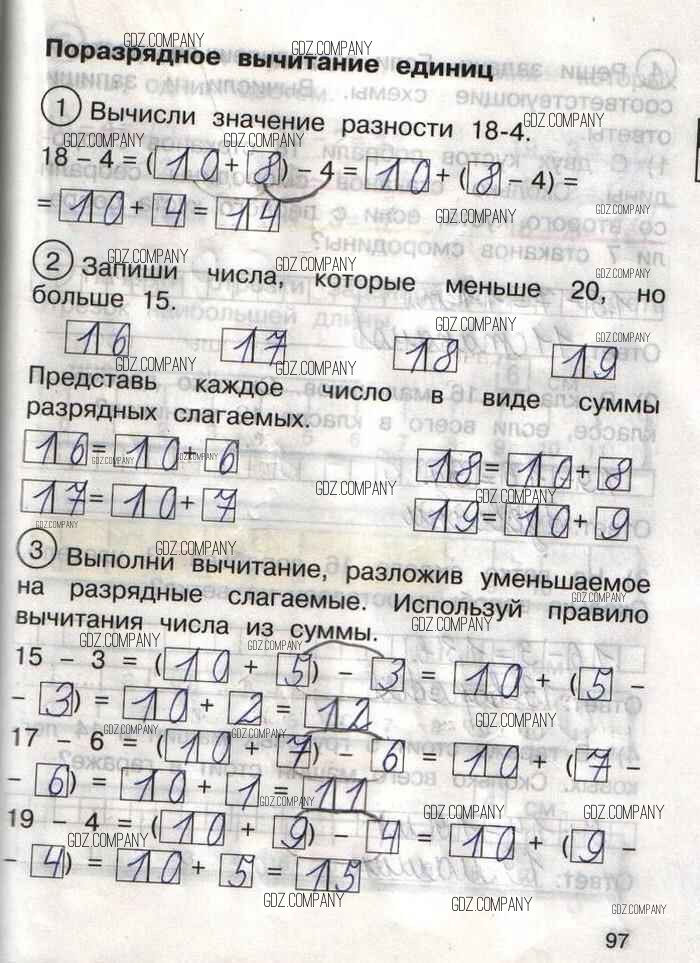 Поразрядное вычитание единиц
1 Вычисли значение разности 18-4.
18 – 4 = (10 + 8) – 4 = 10 + (8 – 4) =
= 10 + 4 = 14
2 Запиши числа, которые меньше 20, но
больше 15.
16 17 18 19
Представь каждое число в виде суммы
разрядных слагаемых.
16 = 10 + 6 18 = 10 + 8
17 = 10 + 7 19 = 10 + 9
3 Выполни вычитание, разложив уменьшаемое
на разрядные слагаемые. Используй правило
вычитания числа из суммы.
15 – 3 = (10 + 5) – 3 = 10 + (5 –
– 3) = 10 + 2 = 12
17 – 6 = (10 + 7) – 6 = 10 + (7 –
– 6) = 10 + 1 = 11
19 – 4 = (10 + 9) – 4 = 10 + (9 –
– 4) = 10 + 5 = 15
97
GDZ.COMPANY